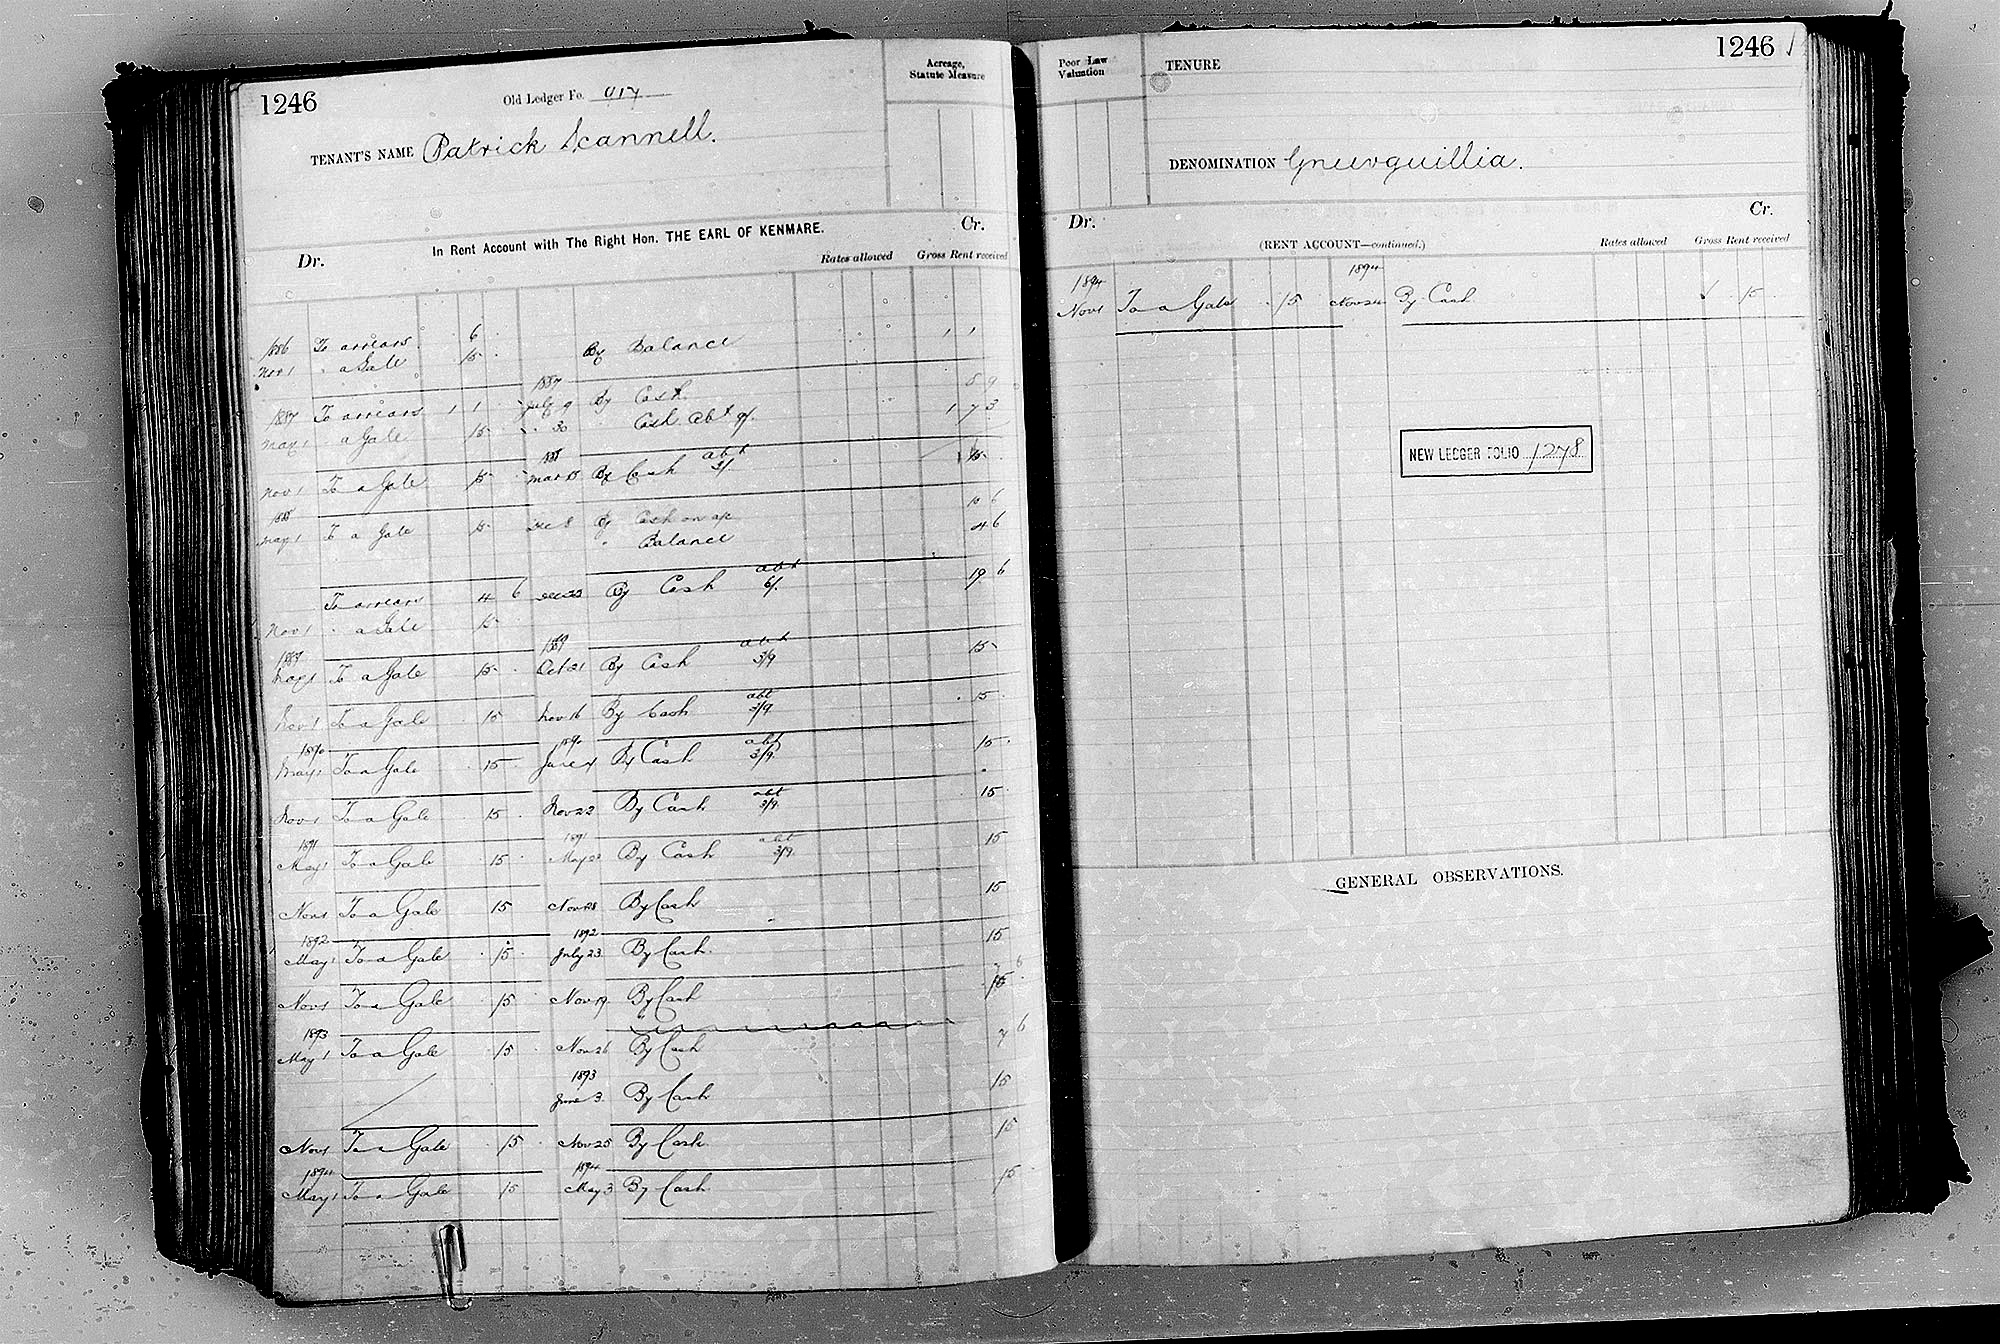 1246
Old Ledger Fo. 917
Acreage, Statute Measure
TENANT'S NAME Patrick Scannell.
In Rent Account with The Right Hon. THE EARL OF KENMARE.
Dr. Cr.
Rates allowed Gross Rent received
1886 To arrears 6 By Balance 1 1
Nov 1 " a Gale 15
1887 To arrears 1 1 1887 July 9 By Cash 8 9
May 1 " a Gale 15 " 30 " Cash Abt 9/. 1 7 3
Nov 1 To a Gale 15 1888 Mar 15 By Cash abt 3/ 15
1888
May 1 To a Gale 15 Dec 8 By Cash on a/c 10 6
" Balance 4 6
To arrears 4 6 Dec 22 By Cash abt 6/. 19 6
Nov 1 " a Gale 15
1889 1889
May 1 To a Gale 15 Oct 21 By Cash abt 3/9 15
Nov 1 To a Gale 15 Nov 16 By Cash abt 3/9 15
1890 1890
May 1 To a Gale 15 June 4 By Cash abt 3/9 15
Nov 1 To a Gale 15 Nov 22 By Cash abt 3/9 15
1891 1891
May 1 To a Gale 15 May 23 By Cash abt 3/9 15
Nov 1 To a Gale 15 Nov 28 By Cash 15
1892 1892
May 1 To a Gale 15 July 23 By Cash 15
Nov 1 To a Gale 15 Nov 19 By Cash
1893
May 1 To a Gale 15 Nov 26 By Cash 7 6
1893
June 3 By Cash 15
Nov 1 To a Gale 15 Nov 25 By Cash 15
1894 1894
May 1 To a Gale 15 May 3 By Cash 15
1246
Poor Law Valuation
TENURE
DENOMINATION Gneevguillia.
Dr. Cr.
(RENT ACCOUNT—continued.)
Rates allowed Gross Rent received
1894 1894
Nov 1 To a Gale 15 Nov 24 By Cash 15
NEW LEDGER FOLIO 1278
GENERAL OBSERVATIONS.